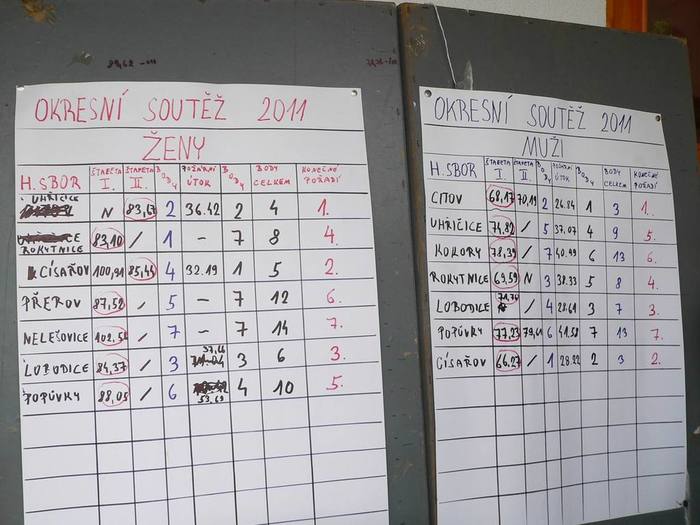 OKRESNÍ SOUTĚŽ 2011
ŽENY
H. SBOR ŠTAFETA I. ŠTAFETA II. BODY POŽÁRNÍ ÚTOK BODY BODY CELKEM KONEČNÉ POŘADÍ
UHŘIČICE N 83,67 2 36.42 2 4 1.
ROKYTNICE 83,10 / 1 - 7 8 4.
CÍSAŘOV 100,91 85,45 4 32.19 1 5 2.
PŘEROV 87,52 / 5 - 7 12 6.
NELEŠOVICE 102,56 / 7 - 7 14 7.
LOBODICE 84,37 / 3 3 6 3.
POPŮVKY 88,05 / 6 53.69 4 10 5.
OKRESNÍ SOUTĚŽ 2011
MUŽI
H. SBOR ŠTAFETA I. ŠTAFETA II. BODY POŽÁRNÍ ÚTOK BODY BODY CELKEM KONEČNÉ POŘADÍ
CITOV 68,17 70,19 2 26.84 1 3 1.
UHŘIČICE 74,82 / 5 37.07 4 9 5.
KOKORY 78,39 / 7 40.99 6 13 6.
ROKYTNICE 69,59 N 3 38.33 5 8 4.
LOBODICE 71.70 / 4 28.61 3 7 3.
POPŮVKY 77,23 79,61 6 41.58 7 13 7.
CÍSAŘOV 66,27 / 1 28.22 2 3 2.